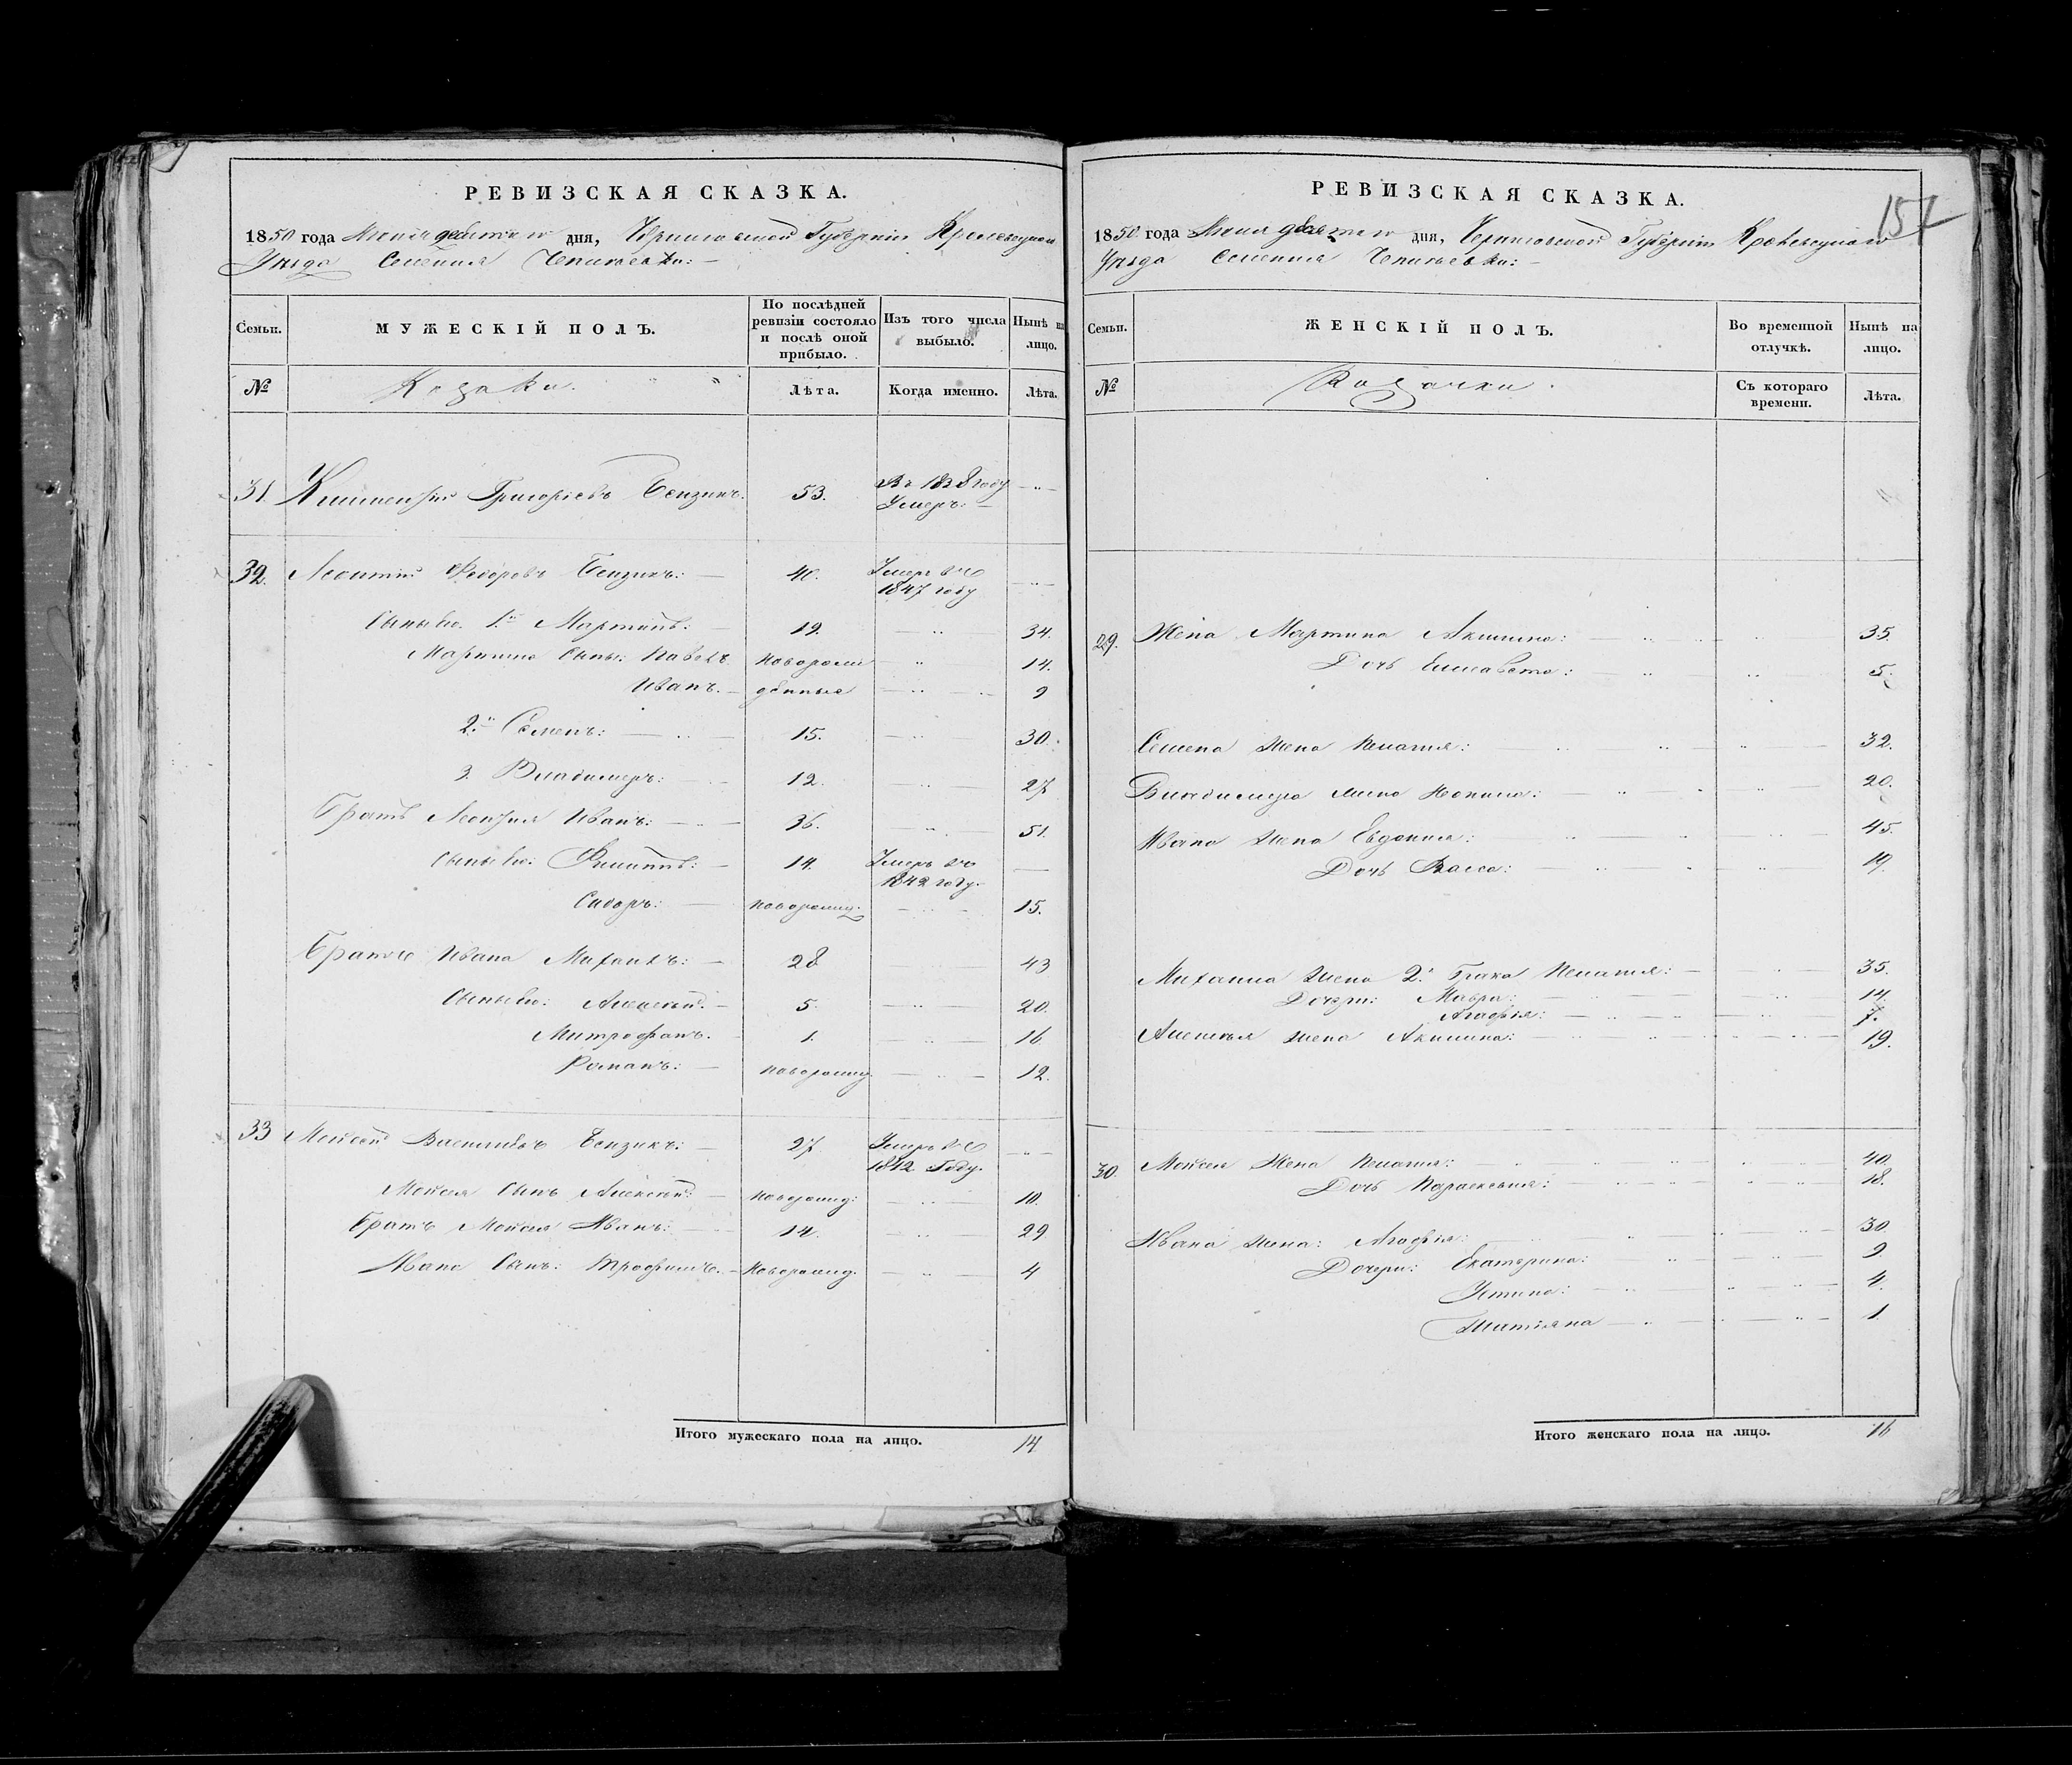 РЕВИЗСКАЯ СКАЗКА.
1850 года Июня девятаго дня, Черниговской Губерніи Кролевецкаго
Уѣзда Селенія
Семьи. МУЖЕСКІЙ ПОЛЪ. По послѣдней ревизіи состояло и послѣ оной прибыло. Изъ того числа выбыло. Нынѣ на лицо.
№ Козаки. Лѣта. Когда именно. Лѣта.
31. Григорьевъ Бензикъ. 53. Въ 1838 году Умеръ.
32. Леонтій Федоровъ Бензикъ: 40. Умеръ въ 1847 году
Сыны его. 1й Мартинъ: 19. 34.
Мартина Сыны: Павелъ новорож 14.
Иванъ. денные 9
2й Семенъ: 15. 30.
3. Владимеръ: 12. 27
Братъ Леонтія Иванъ: 36. 51.
Сыны его: Филиппъ: 14. Умеръ въ 1842 году.
Сидоръ: новорожд. 15.
Братъ Ивана Михаилъ: 28 43
Сыны его: Алексѣй. 5. 20.
Митрофанъ. 1. 16
Романъ: новорожд 12.
33 Моисей Васильевъ Бензикъ: 27 Умеръ въ 1842 Году.
Моисея Сынъ Алексѣй: новорожд: 10.
Братъ Моисея Иванъ: 14. 29
Ивана Сынъ: Трофимъ. Новорожд. 4
Итого мужескаго пола на лицо. 14
РЕВИЗСКАЯ СКАЗКА. 157
1850. года Июня девятаго дня, Черниговской Губерніи Кролевецкаго
Уѣзда Селенія
Семьи. ЖЕНСКІЙ ПОЛЪ. Во временной отлучкѣ. Нынѣ на лицо.
№ Козачки. Съ котораго времени. Лѣта.
29. Жена Мартина Акилина: 35.
Дочь Елисавета: 5.
Семена жена Пелагія: 32.
Владимера жена 20.
Ивана жена Евдокия: 45.
Дочь Васса: 19.
Михаила жена 2: брака Пелагія: 35.
Дочери: Мавра: 14.
Агафія: 7.
Алексѣя жена Акилина: 19.
30. Моисея Жена Пелагія: 40.
Дочь Параскевия: 18.
Ивана жена: Агафія: 30
Дочери: Екатерина: 9.
Устина: 4.
Татіяна 1.
Итого женскаго пола на лицо. 16